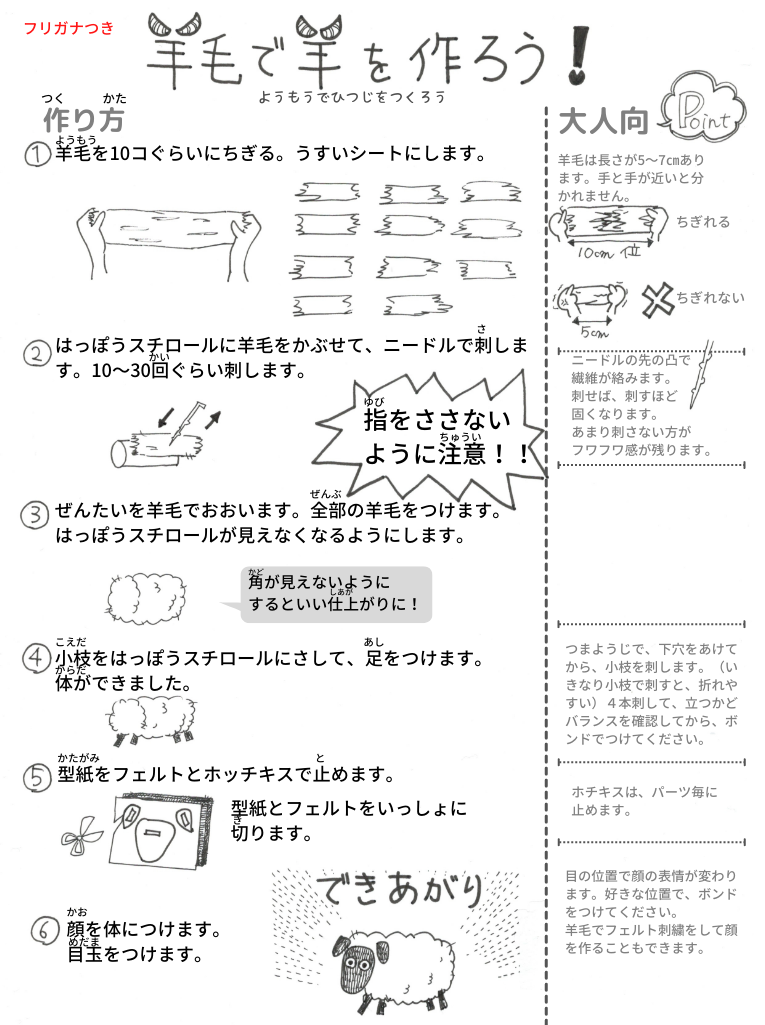 フリガナつき
羊毛で羊を作ろう!
ようもうでひつじをつくろう
つく かた
作り方
ようもう
①羊毛を10コぐらいにちぎる。うすいシートにします。
さ
②はっぽうスチロールに羊毛をかぶせて、ニードルで刺しま
かい
す。10〜30回ぐらい刺します。
ゆび
指をささない
ちゅうい
ように注意!!
ぜんぶ
③ぜんたいを羊毛でおおいます。全部の羊毛をつけます。
はっぽうスチロールが見えなくなるようにします。
かど
角が見えないように
しあが
するといい仕上がりに!
こえだ あし
④小枝をはっぽうスチロールにさして、足をつけます。
からだ
体ができました。
かたがみ と
⑤型紙をフェルトとホッチキスで止めます。
型紙とフェルトをいっしょに
き
切ります。
できあがり
かお
⑥顔を体につけます。
めだま
目玉をつけます。
大人向 Point
羊毛は長さが5〜7㎝あり
ます。手と手が近いと分
かれません。
ちぎれる
10cm位
ちぎれない
5cm
ニードルの先の凸で
繊維が絡みます。
刺せば、刺すほど
固くなります。
あまり刺さない方が
フワフワ感が残ります。
つまようじで、下穴をあけて
から、小枝を刺します。(い
きなり小枝で刺すと、折れや
すい)4本刺して、立つかど
バランスを確認してから、ボ
ンドでつけてください。
ホチキスは、パーツ毎に
止めます。
目の位置で顔の表情が変わり
ます。好きな位置で、ボンド
をつけてください。
羊毛でフェルト刺繍をして顔
を作ることもできます。